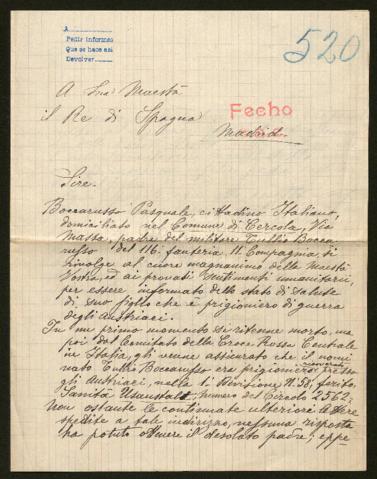 A
Pedir informes
Que se hace así
Devolver
520
A Sua Maestà
il Re di Spagna
Fecho
Madrid
Sire.
Boccarusso Pasquale, cittadino Italiano,
domiciliato nel Comune di Cercola, Via
Massa, padre del militare Tullio Bocca
russo del 116. fanteria 11. Compagnia, si
rivolge al cuore magnanimo della Maestà
Vostra, ed ai provati sentimenti umanitarii,
per essere informato dello stato di salute
di suo figlio che è prigioniero di guerra
degli Austriaci.
In un primo momento si ritenne morto, ma
poi dal Comitato della Croce Rossa Centrale
in Italia, gli venne assicurato che il nomi
nato Tullio Boccarusso era prigioniero presso
gli Austriaci, nella Divisione N. 55, ferito,
Sanità numero del Circolo 2562.
Non ostante le continuate ulteriori lettere
spedite a tale indirizzo, nessuna risposta
ha potuto ottenere il desolato padre; eppe-